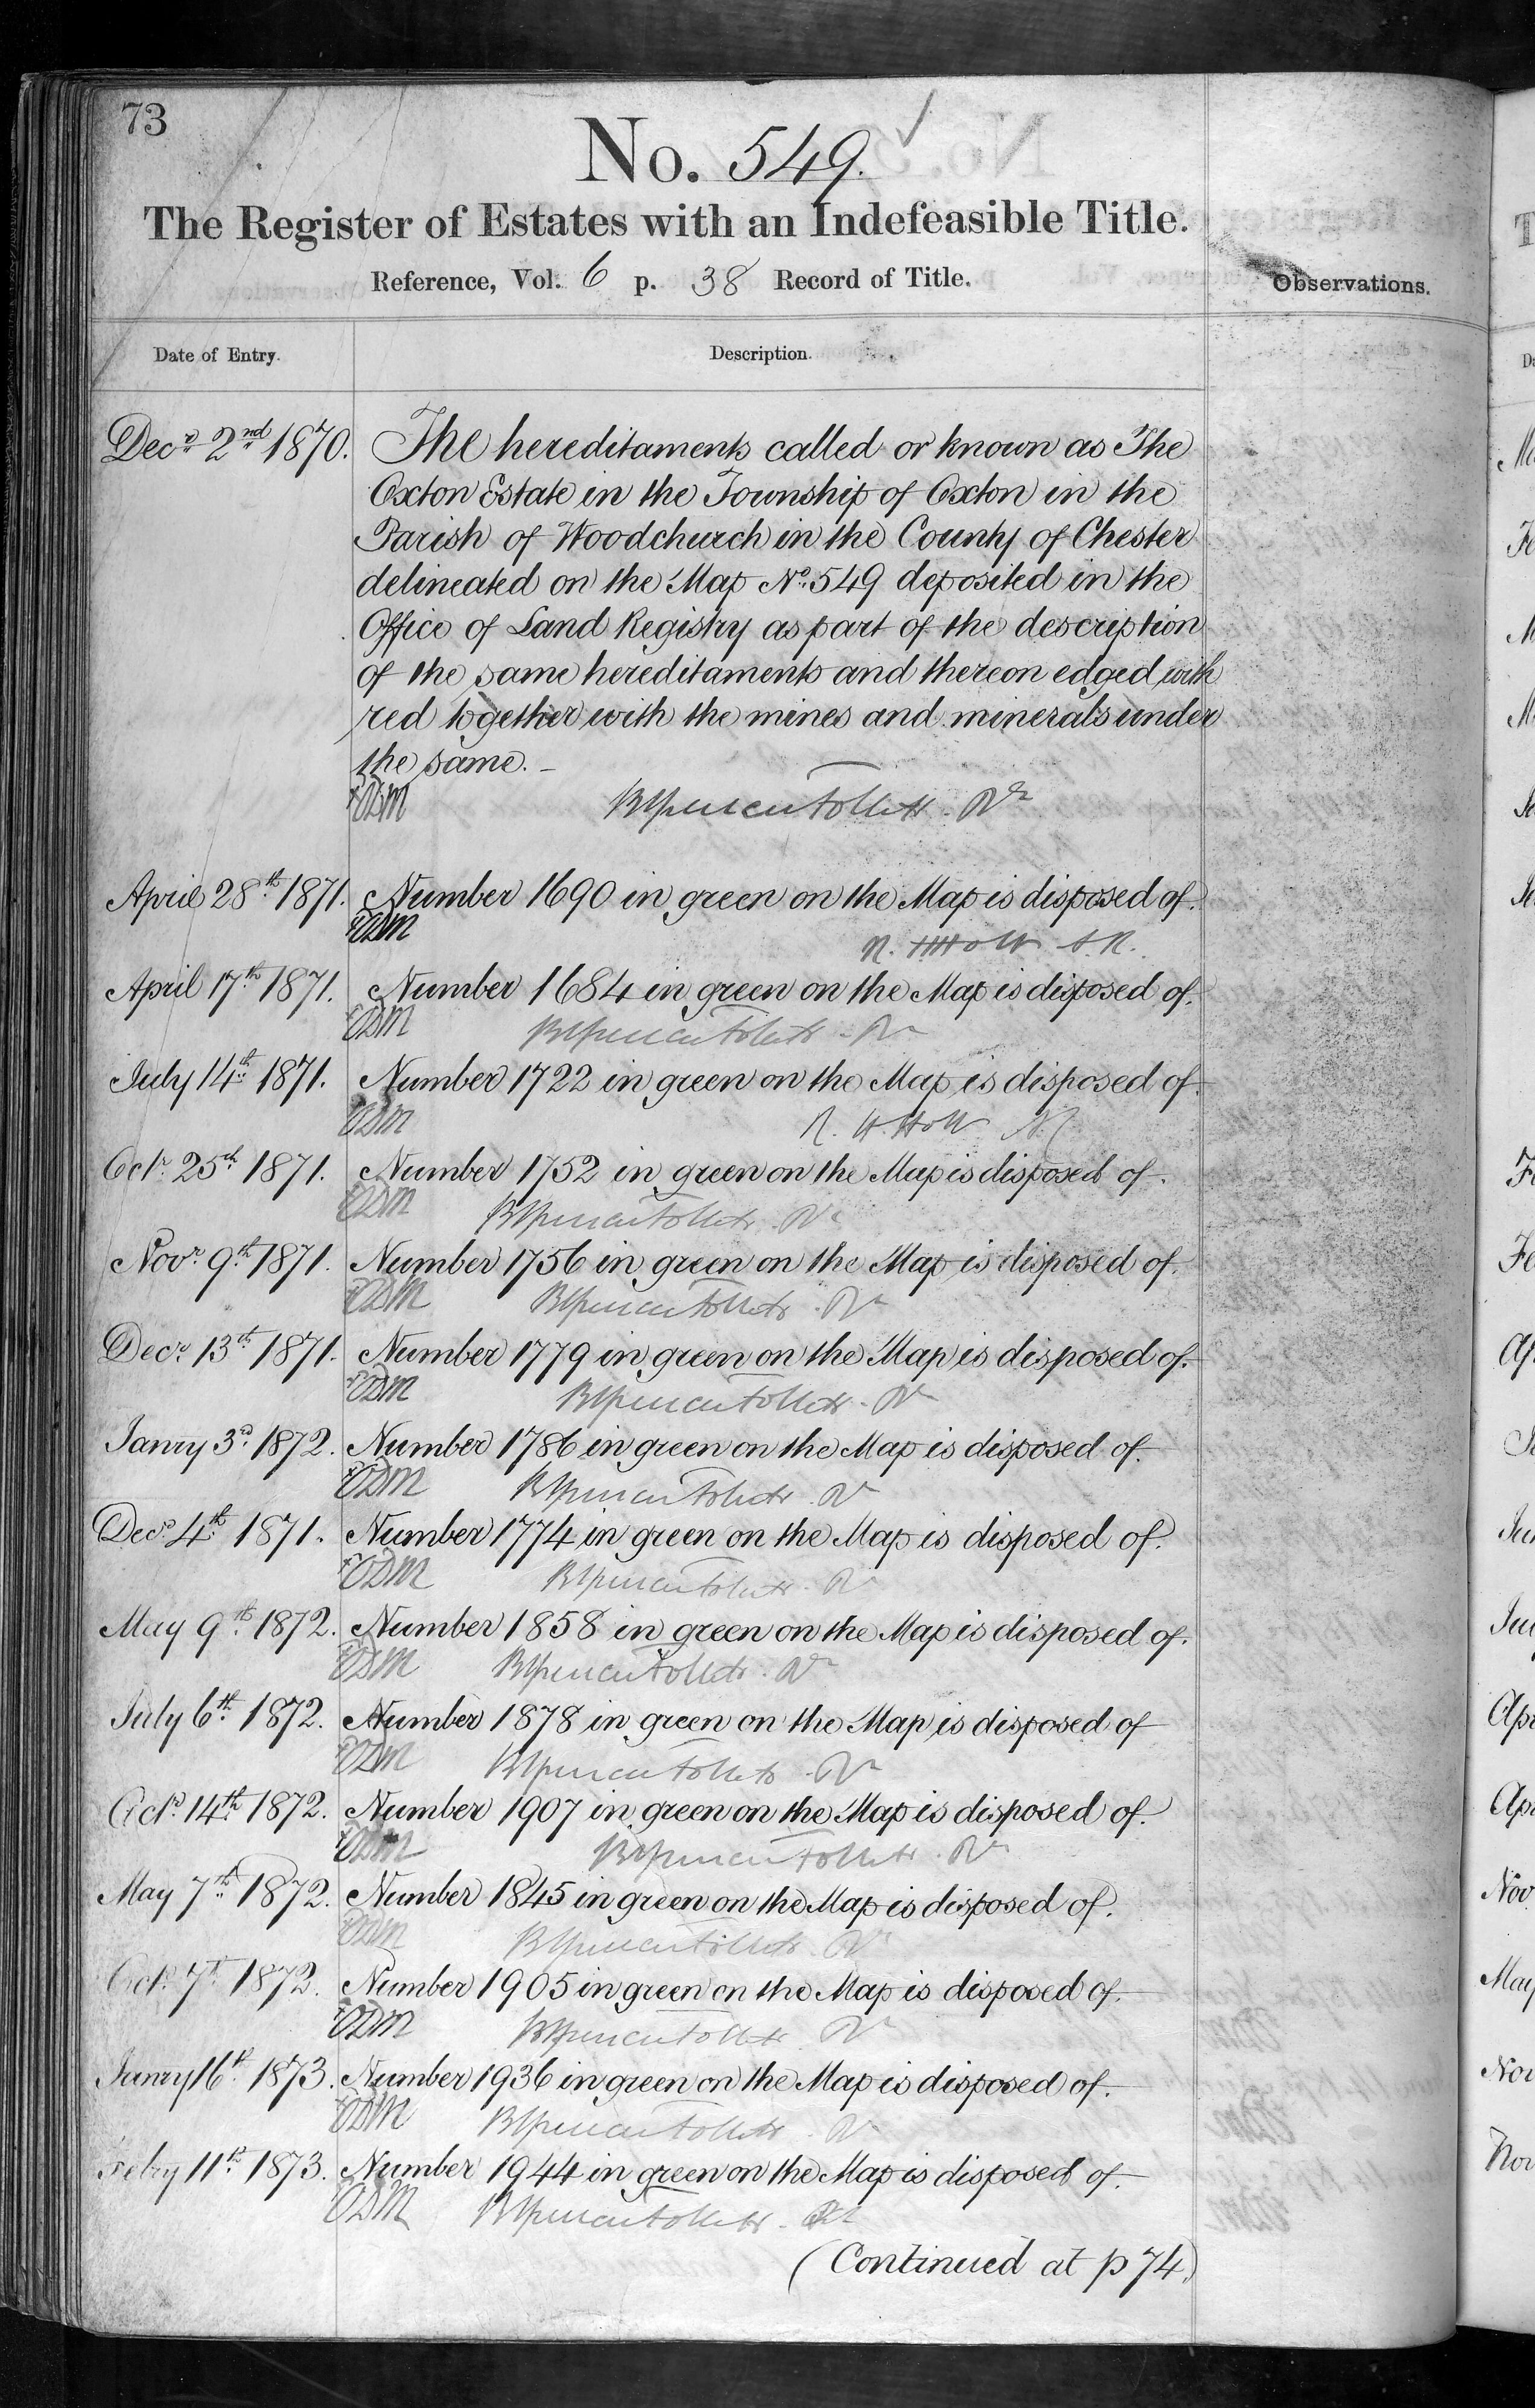 73
No. 549.
The Register of Estates with an Indefeasible Title.
Reference, Vol. 6 p. 38 Record of Title.
Observations.
Date of Entry.
Description.
Decr 2nd 1870. The hereditaments called or known as The
Oxton Estate in the Township of Oxton in the
Parish of Woodchurch in the County of Chester
delineated on the Map No. 549 deposited in the
Office of Land Registry as part of the description
of the same hereditaments and thereon edged with
red together with the mines and minerals under
the same.
April 28th 1871. Number 1690 in green on the Map is disposed of.
April 17th 1871. Number 1684 in green on the Map is disposed of.
July 14th 1871. Number 1722 in green on the Map is disposed of.
Octr 25th 1871. Number 1752 in green on the Map is disposed of.
Novr 9th 1871. Number 1756 in green on the Map is disposed of.
Decr 13th 1871. Number 1779 in green on the Map is disposed of.
Janry 3rd 1872. Number 1786 in green on the Map is disposed of.
Decr 4th 1871. Number 1774 in green on the Map is disposed of.
May 9th 1872. Number 1858 in green on the Map is disposed of.
July 6th 1872. Number 1878 in green on the Map is disposed of
Octr 14th 1872. Number 1907 in green on the Map is disposed of.
May 7th 1872. Number 1845 in green on the Map is disposed of.
Octr 7th 1872. Number 1905 in green on the Map is disposed of.
Janry 16th 1873. Number 1936 in green on the Map is disposed of.
Febry 11th 1873. Number 1944 in green on the Map is disposed of.
(Continued at p 74)